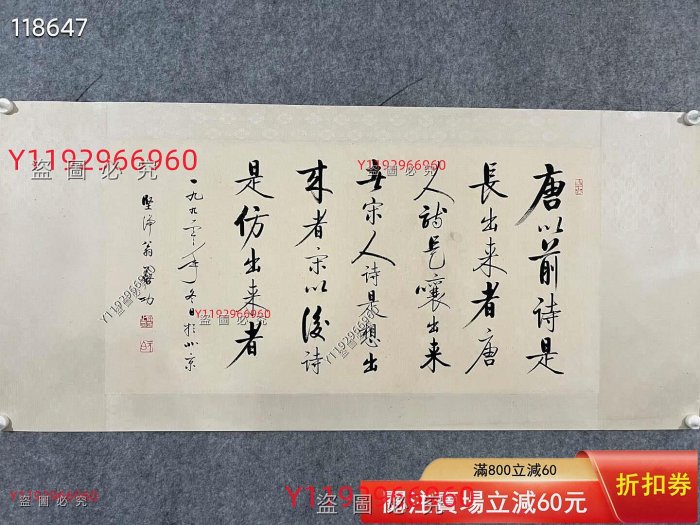 118647
Y1192966960
盜圖必究
唐以前詩是
長出来者唐
人詩是嚷出来
者宋人诗是想出
来者宋以後詩
是仿出来者
一九九〇年冬日於北京
坚净翁启功
Y1192966960
盜圖必究
Y1192966960
盜圖必究
Y1192966960
盜圖必究
Y1192966960
盜圖必究
Y1192966960
盜圖必究
滿800立減60
關注賣場立減60元
折扣券